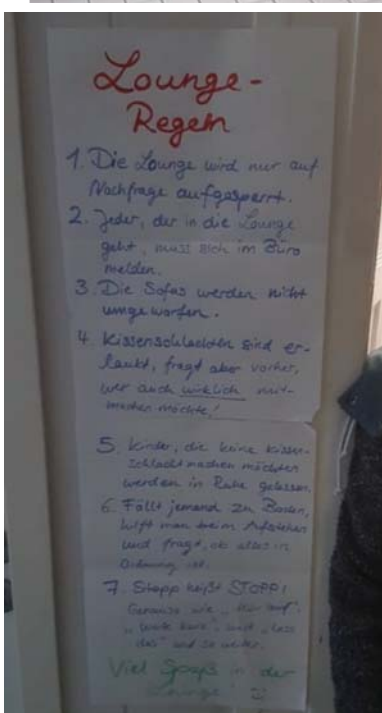 Lounge-
Regeln
1. Die Lounge wird nur auf
Nachfrage aufgesperrt.
2. Jeder, der in die Lounge
geht, muss sich im Büro
melden.
3. Die Sofas werden nicht
umgeworfen.
4. Kissenschlachten sind er-
laubt, fragt aber vorher,
wer auch wirklich mit-
machen möchte!
5. Kinder, die keine Kissen-
schlacht machen möchten
werden in Ruhe gelassen.
6. Fällt jemand zu Boden,
hilft man beim Aufstehen
und fragt, ob alles in
Ordnung ist.
7. Stopp heißt STOPP!
Genauso wie „Hör auf“,
„warte kurz“, und „lass
das“ und so weiter.
Viel Spaß in der
Lounge!